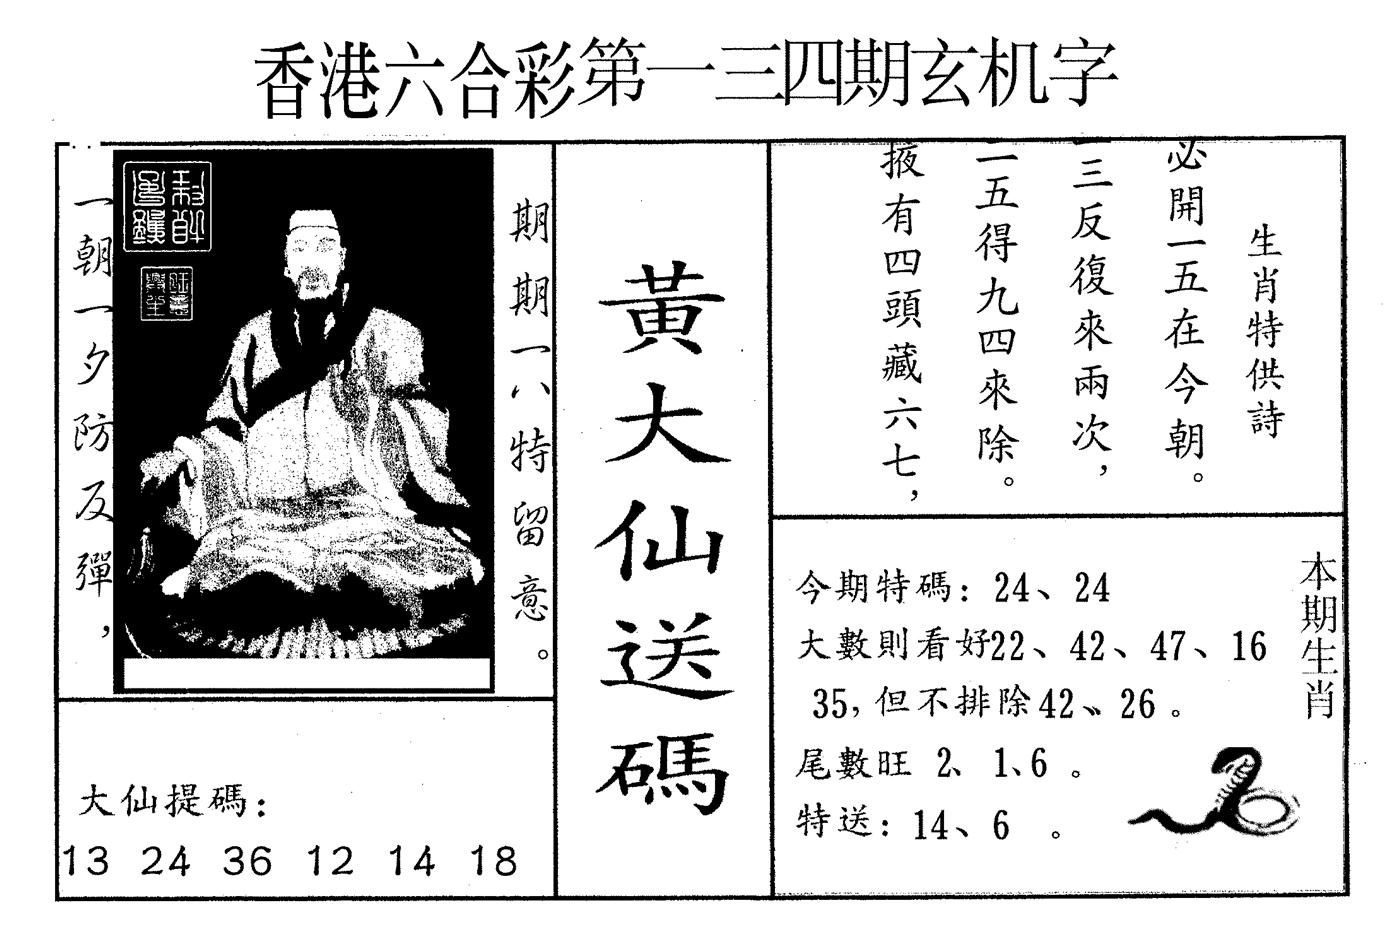 香港六合彩第一三四期玄机字
期期一八特留意。
一朝一夕防反彈，
大仙提碼：
13 24 36 12 14 18
黃大仙送碼
生肖特供詩
必開一五在今朝。
三反復來兩次，
二五得九四來除。
掖有四頭藏六七，
本期生肖
今期特碼：24、24
大數則看好22、42、47、16
35，但不排除42、26。
尾數旺 2、1、6。
特送：14、6 。